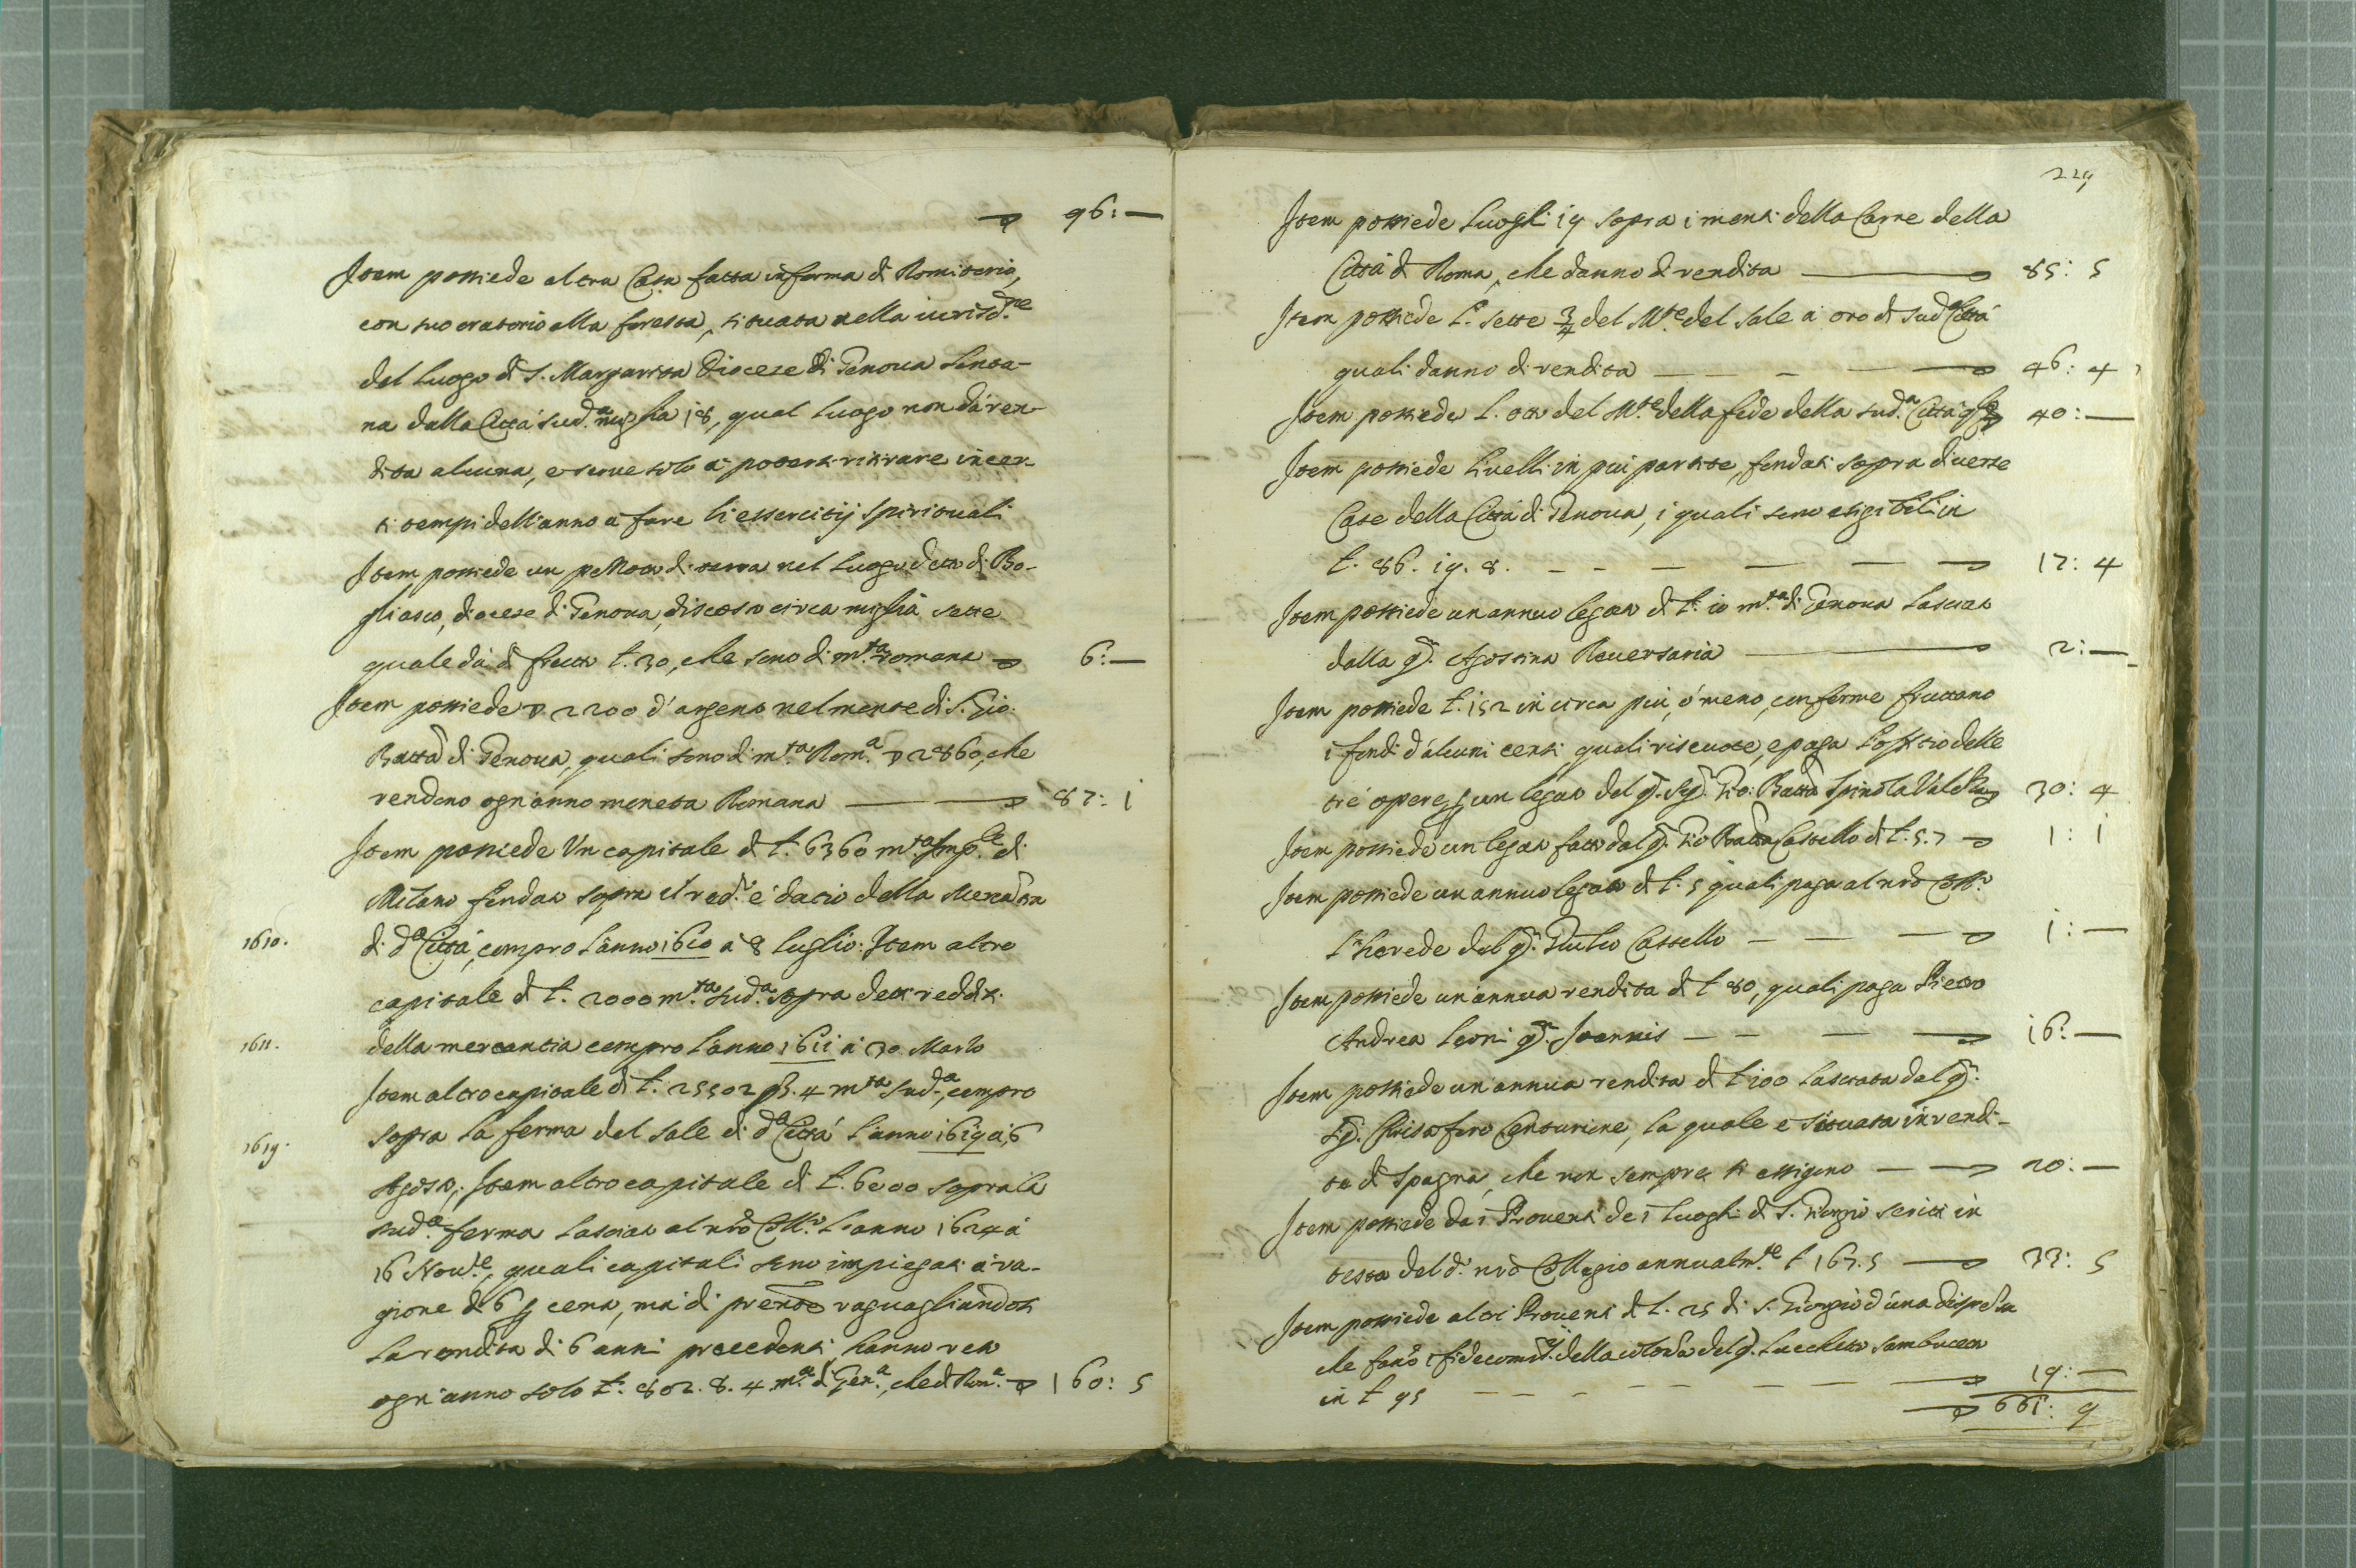 96: —
Item possiede altra Casa fatta in forma di Romitorio,
con suo oratorio alla foresta, situata nella iurisd.ne
del luogo di S. Margarita Diocese di Genoua lonta-
na dalla Città sud.a miglia 18, qual luogo non dà ren-
dita alcuna, e serue solo à poterti ritirare in cer-
ti tempi dell'anno à fare li essercitij spirituali
Item possiede un pezzo di terra nel luogo detto di Bo-
gliasco, diocese di Genoua, discosto circa miglia sette
quale dà di frutto L. 30, che sono di m.ta romana 6: —
Item possiede 2200 d'argento nel monte di S. Gio:
Batta di Genoua, quali sono di m.ta Rom.a 2860, che
rendono ogn'anno moneta Romana 87: 1
Item possiede Un capitale di L. 6360 m.ta Imp.le di
Milano fondato sopra il red.o e datio della Mercantia
1610. di d.a Città, compro l'anno 1610 à 8 luglio: Item altro
capitale di L. 2000 m.ta sud.a sopra detti redditi
1611. della mercantia compro l'anno 1611 à 30 Marzo
Item altro capitale di L. 25502 s. 4 m.ta sud.a, compro
1619. sopra la ferma del sale di d.a Città l'anno 1619 à 6
Agosto; Item altro capitale di L. 6000 sopra la
sud.a ferma lasciato al nrõ Coll.o l'anno 1624 à
16 Nou.e, quali capitali sono impiegati à ra-
gione di 6 p cento, mà di prente raguagliandosi
la rendita di 6 anni precedenti hanno reso
ogn'anno solo L. 802. 8. 4 m.a di Gen.a, che di Rom.a 160: 5
229
Item possiede Luoghi 19 sopra i monti della Carne della
Città di Roma, che danno di rendita 85: 5
Item possiede L. sette 3/4 del M.te del Sale à oro di sud.a Città
quali danno di rendita 46: 4
Item possiede L. otto del M.te della fede della sud.a Città 40: —
Item possiede Liuelli in piu partite, fondati sopra diuerse
Case della Città di Genoua, i quali sono esigibili in
L. 86. 19. 8. 17: 4
Item possiede un annuo legato di L. 10 m.ta di Genoua lasciato
dalla q. Agostina Reuersaria 2: —
Item possiede L. 152 in circa piu, ò meno, conforme fruttano
i fondi d'alcuni censi quali riscuote, e paga l'offitio delle
tre opere p un legato del q. Sig. Gio: Batta Spinola 30: 4
Item possiede un legato fatto dal q. Gio Batta Castello di L. 5.7 1: 1
Item possiede un annuo legato di L. 5 quali paga al nrõ Coll.o
l'herede del q. Giulio Castello 1: —
Item possiede un'annua rendita di L 80, quali paga Pietro
Andrea Leoni q. Joannis 16: —
Item possiede un'annua rendita di L 100 lasciata dal q.
Sig. Christoforo Centurione, la quale e situata in rendi-
te di Spagna, che non sempre si essigono 20: —
Item possiede da i Prouenti de i Luoghi di S. Giorgio scritti in
testa del d.o nrõ Collegio annualm.te L 167. 5 33: 5
Item possiede altri Prouenti di L. 25 di S. Giorgio d'una dispensa
che fanno i fidecomiss.rij della colonna del q. Lucchetto Sambuceto
in L 95 19: —
661: 9